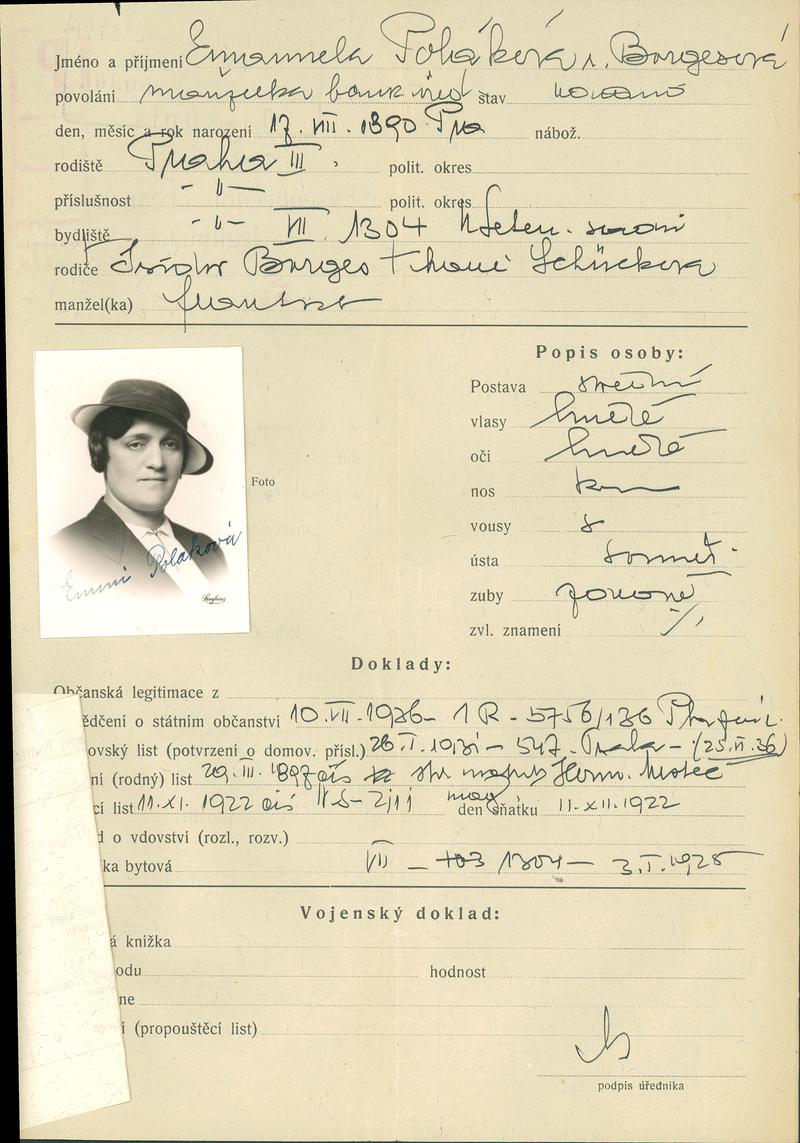 Jméno a příjmení Emanuela Poláková r. Borgesová
povolání manželka bank. úřed. stav
den, měsíc a rok narození 17. VII. 1890 nábož.
rodiště Praha III polit. okres
příslušnost - " - polit. okres
bydliště - " - VII. 1304
rodiče Isidor Borges + Schückova
manžel(ka) František
Popis osoby:
Postava střední
vlasy hnědé
oči hnědé
nos
vousy
ústa souměr.
zuby
zvl. znamení
Foto
Emmi Poláková
Doklady:
Občanská legitimace z
ědčení o státním občanství 10. VII. 1936 - 1 R - 5756/136
ovský list (potvrzení o domov. přísl.) 547 - Praha - (25. II. 36)
ní (rodný) list 29. III. 1897
cí list 11. XI. 1922 den sňatku 11. XII. 1922
d o vdovství (rozl., rozv.)
ka bytová VII - 1304 - 3. I. 1925
Vojenský doklad:
á knížka
odu hodnost
ne
í (propouštěcí list)
podpis úředníka